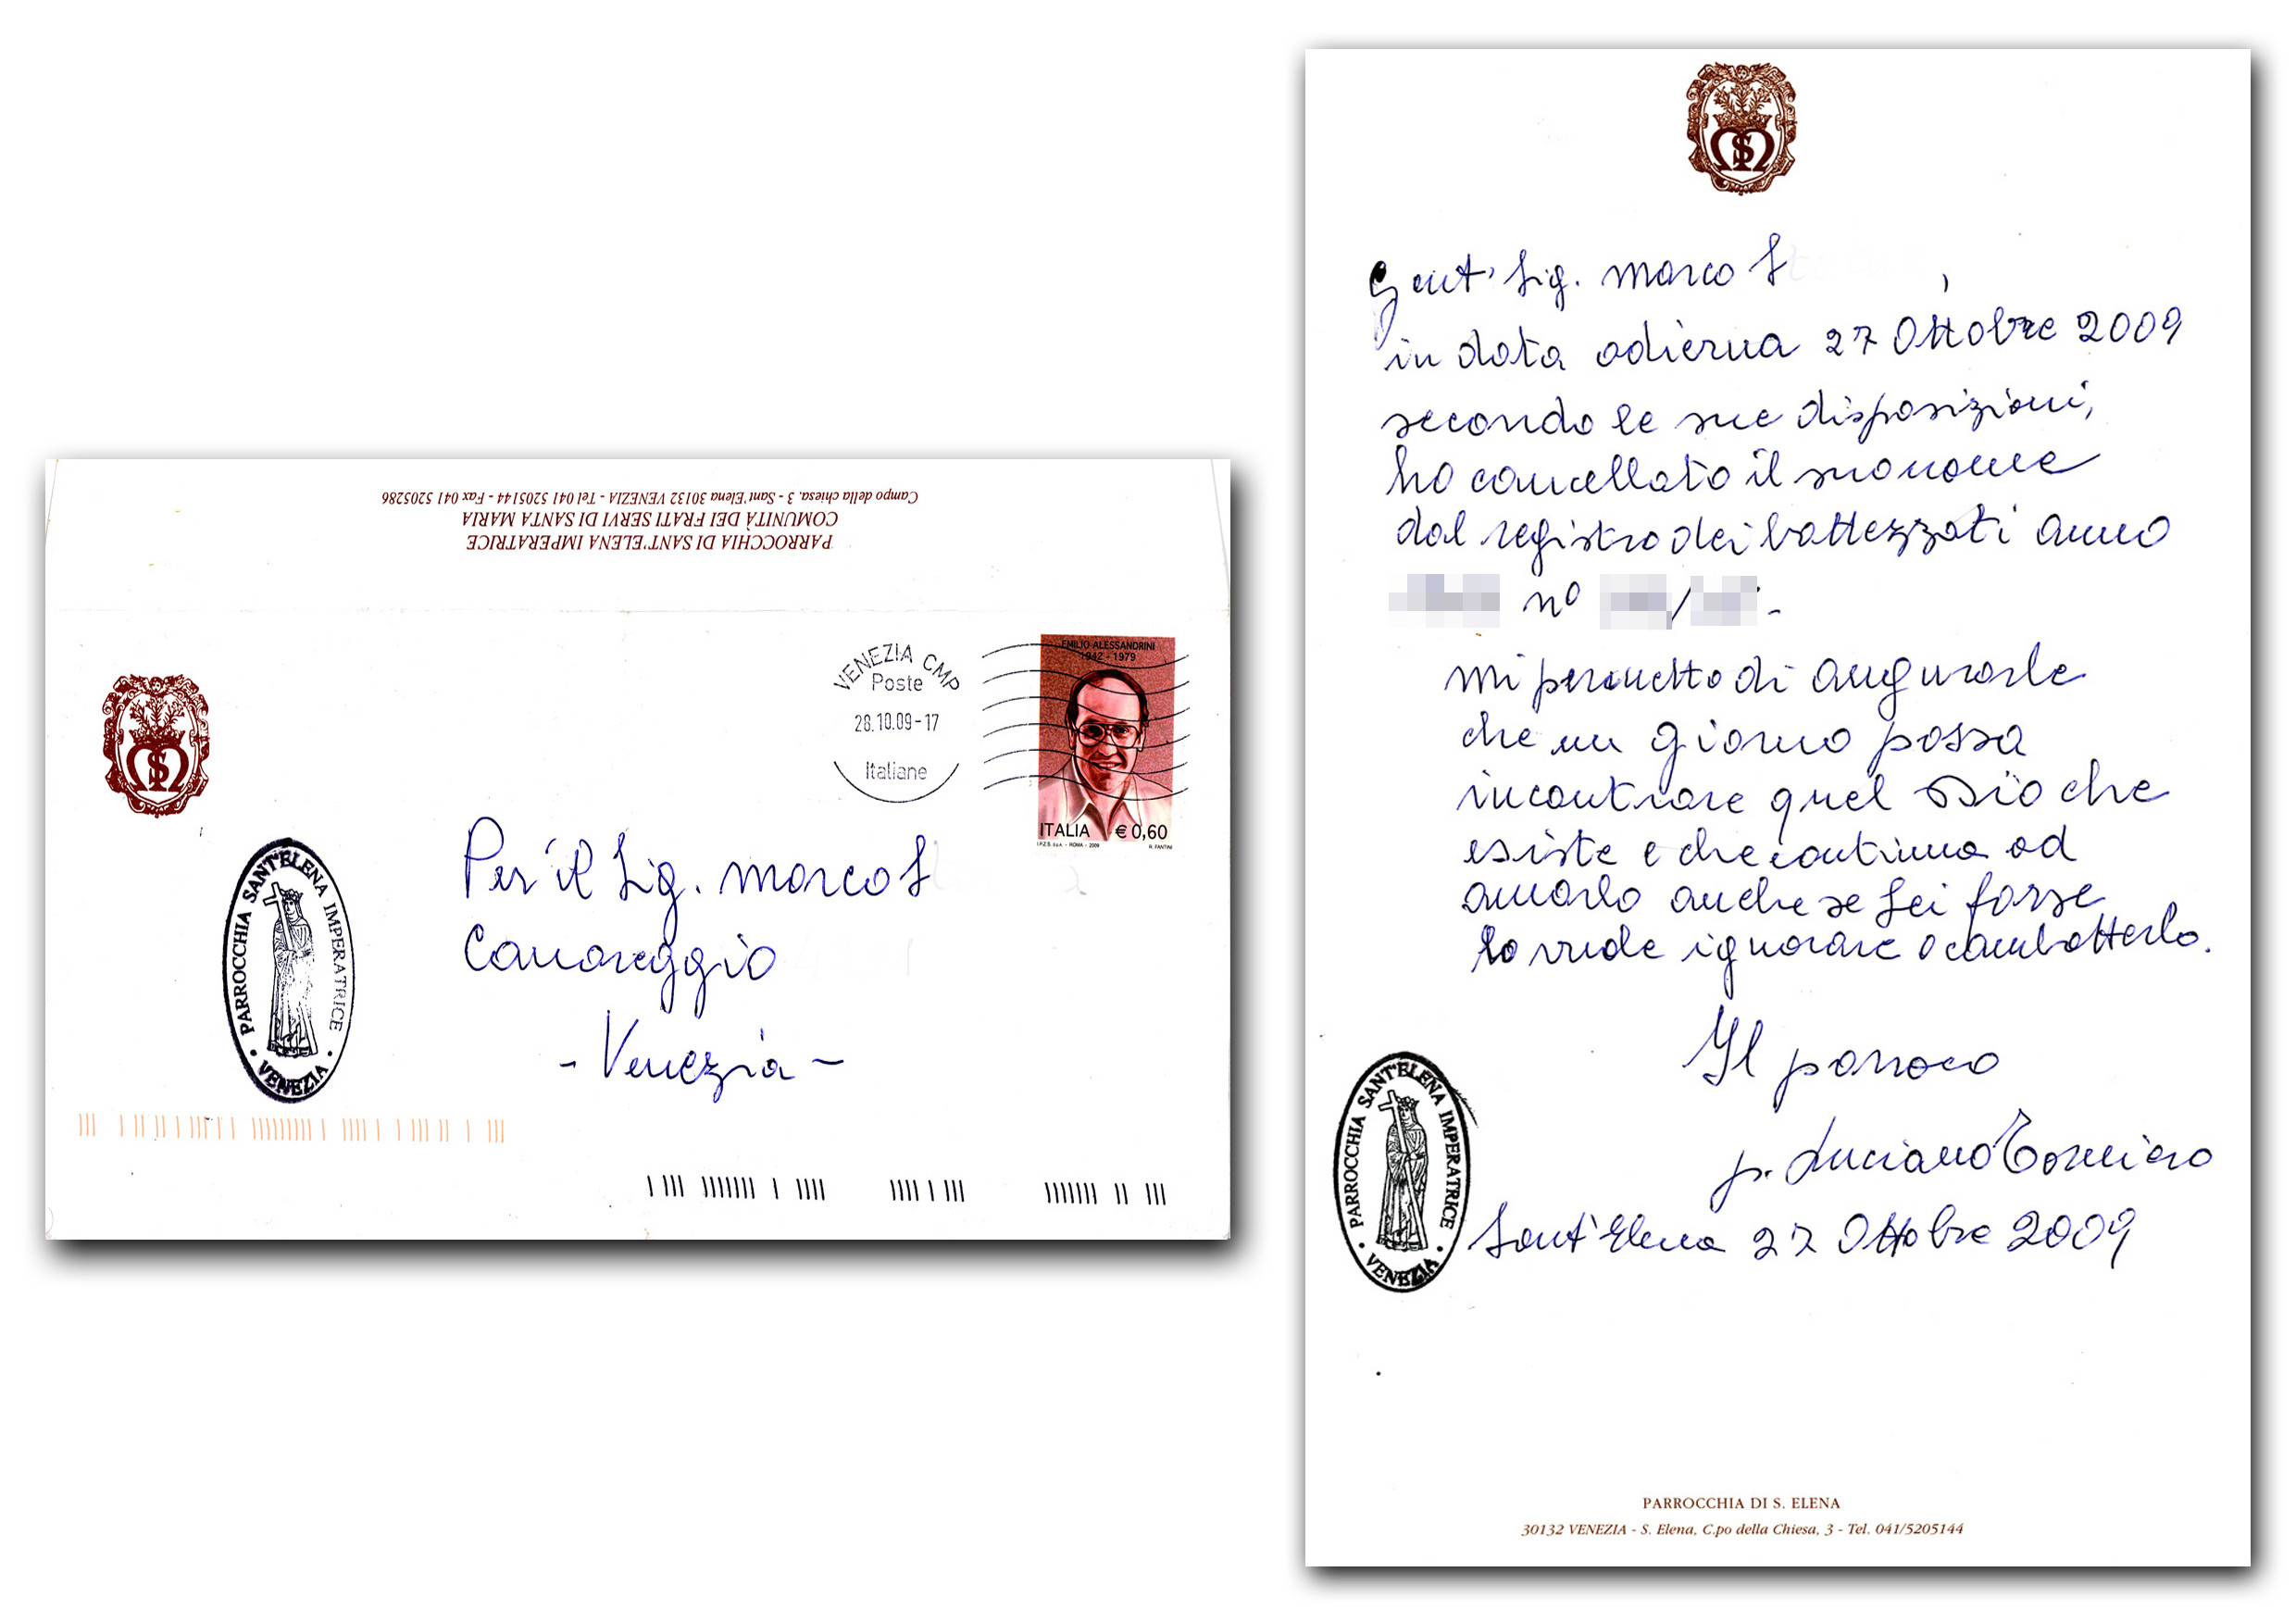 Campo della chiesa, 3 - Sant'Elena 30132 VENEZIA - Tel 041 5205144 - Fax 041 5205286
COMUNITÀ DEI FRATI SERVI DI SANTA MARIA
PARROCCHIA DI SANT'ELENA IMPERATRICE
VENEZIA CMP
Poste
28.10.09-17
Italiane
EMILIO ALESSANDRINI
1942 - 1979
ITALIA € 0,60
I.P.Z.S. S.p.A. - ROMA - 2009 R. FANTINI
PARROCCHIA SANT'ELENA IMPERATRICE
• VENEZIA •
Per il Sig. Marco S
Canareggio
- Venezia -
Gent. Sig. Marco S ,
in data odierna 27 Ottobre 2009
secondo le sue disposizioni,
ho cancellato il suo nome
dal registro dei battezzati anno
n° / -
Mi permetto di augurarle
che un giorno possa
incontrare quel Dio che
esiste e che continua ad
amarlo anche se Lei forse
lo vuole ignorare o combatterlo.
Il parroco
p. Luciano
Sant'Elena 27 Ottobre 2009
PARROCCHIA SANT'ELENA IMPERATRICE
• VENEZIA •
PARROCCHIA DI S. ELENA
30132 VENEZIA - S. Elena, C.po della Chiesa, 3 - Tel. 041/5205144